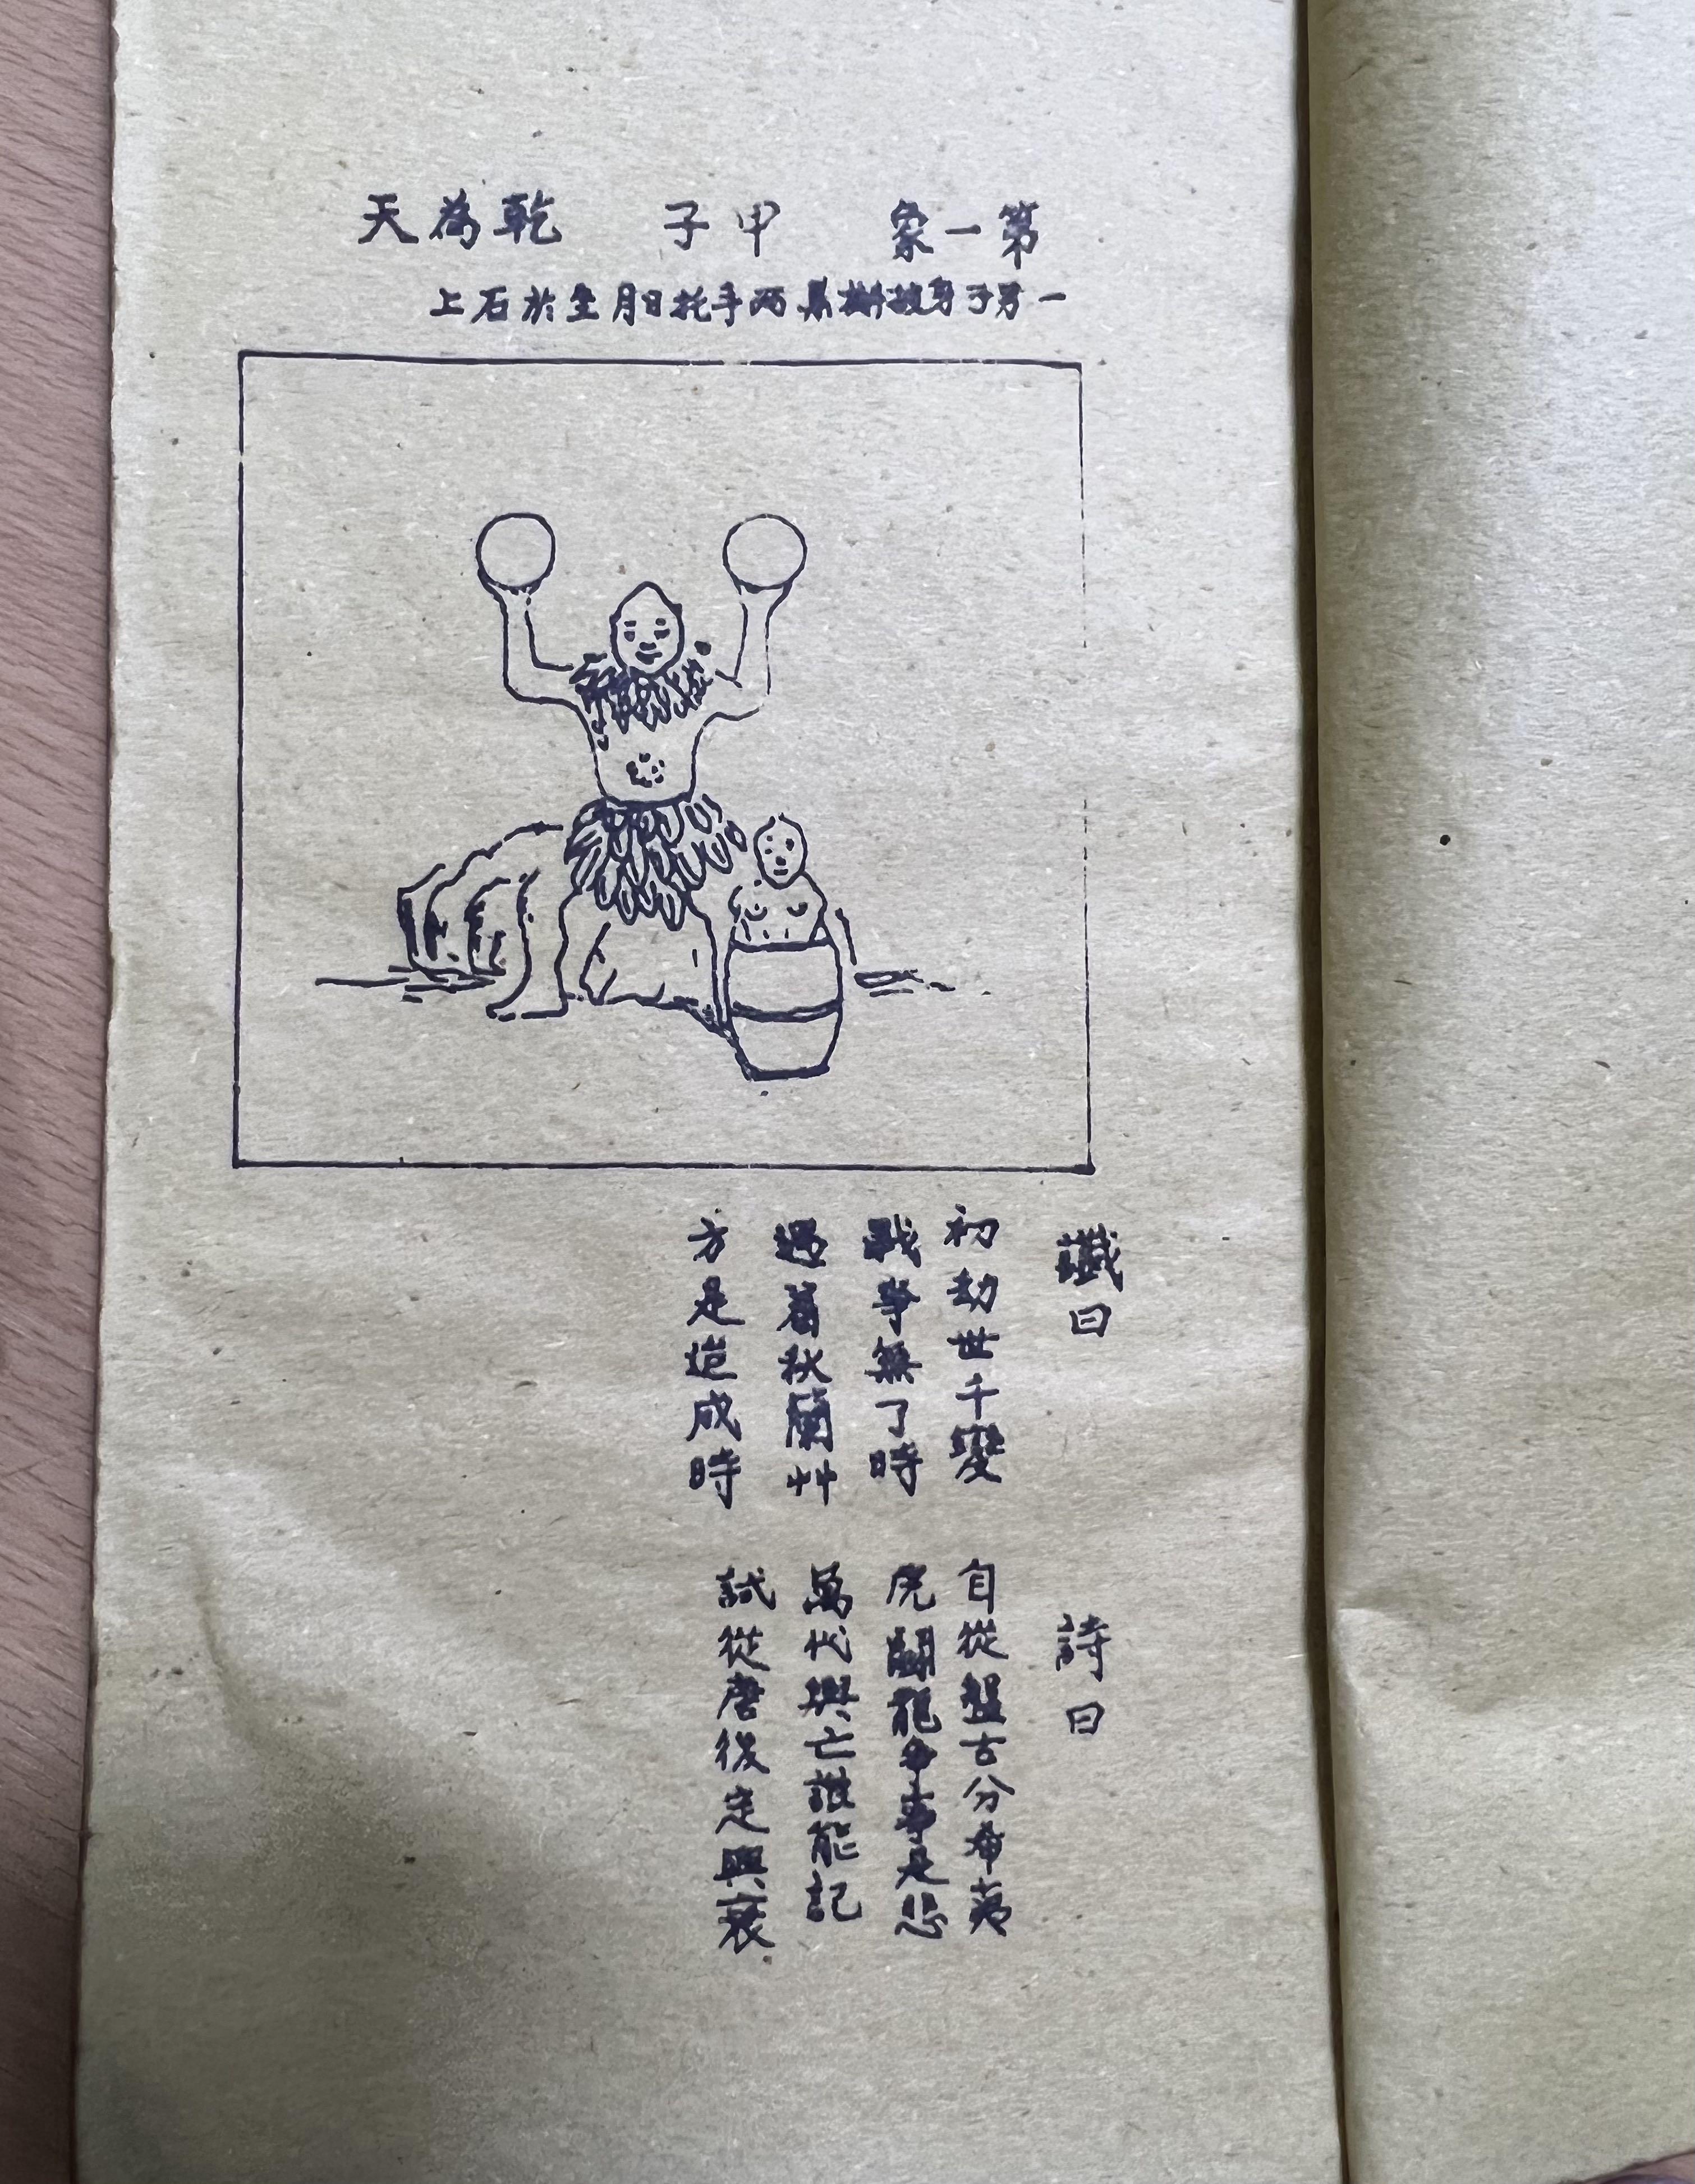 第一象 甲子 乾為天
一男子身披樹葉兩手托日月坐於石上
讖曰
初劫世千變
戰爭無了時
遇着秋蘭艸
方是造成時
詩曰
自從盤古分希夷
虎鬭龍爭事是悲
萬代興亡誰能記
試從唐後定興衰